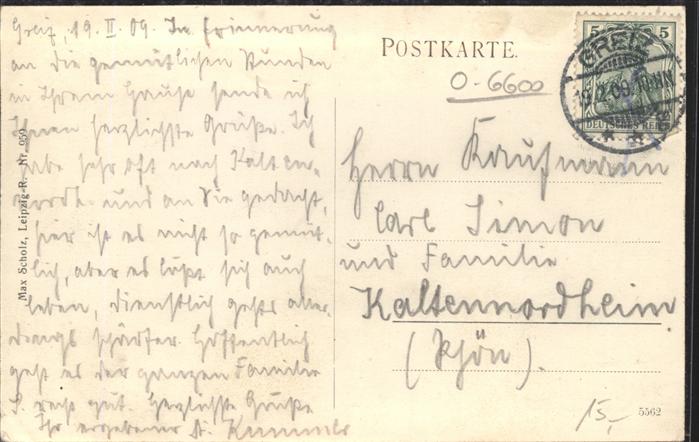 Greiz, 19. II. 09. In Erinnerung
an die gemütlichen Stunden
in Ihrem Hause sende ich
Ihnen herzlichste Grüße. Ich
habe sehr oft nach Kalten-
nordh. und an Sie gedacht,
hier ist es nicht so gemüt-
lich, aber es läßt sich auch
leben, dienstlich gehts aller-
dings schärfer. Hoffentlich
geht es der ganzen Familie
S. recht gut. Herzlichste Grüße
Ihr ergebener A. Kummer
Max Scholz, Leipzig-R. Nr. 959
POSTKARTE.
O-6600
5 5
DEUTSCHES REICH
GREIZ
19.2.09.
Herrn Kaufmann
Carl Simon
und Familie
Kaltennordheim
(Rhön).
15,-
5562